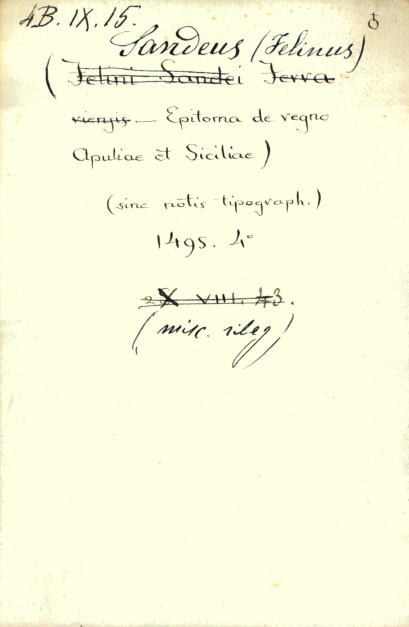 4B. IX. 15.
Sandeus (Felinus)
(Felini Sandei Ferra
riensis — Epitoma de regno
Apuliae et Siciliae)
(sine notis tipograph.)
1495. 4°
2 X VIII. 43.
(misc. rileg)